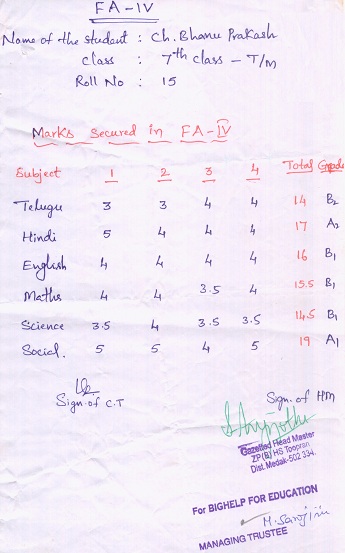 FA-IV
Name of the student : Ch. Bhanu Prakash
class : 7th class - T/m
Roll No : 15
Marks secured in FA-IV
Subject 1 2 3 4 Total Grade
Telugu 3 3 4 4 14 B2
Hindi 5 4 4 4 17 A2
English 4 4 4 4 16 B1
Maths 4 4 3.5 4 15.5 B1
Science 3.5 4 3.5 3.5 14.5 B1
Social. 5 5 4 5 19 A1
Sign. of C.T
Sign. of HM
Gazetted Head Master
ZP(B) HS Toopran
Dist. Medak-502 334.
For BIGHELP FOR EDUCATION
M. Sarojini
MANAGING TRUSTEE